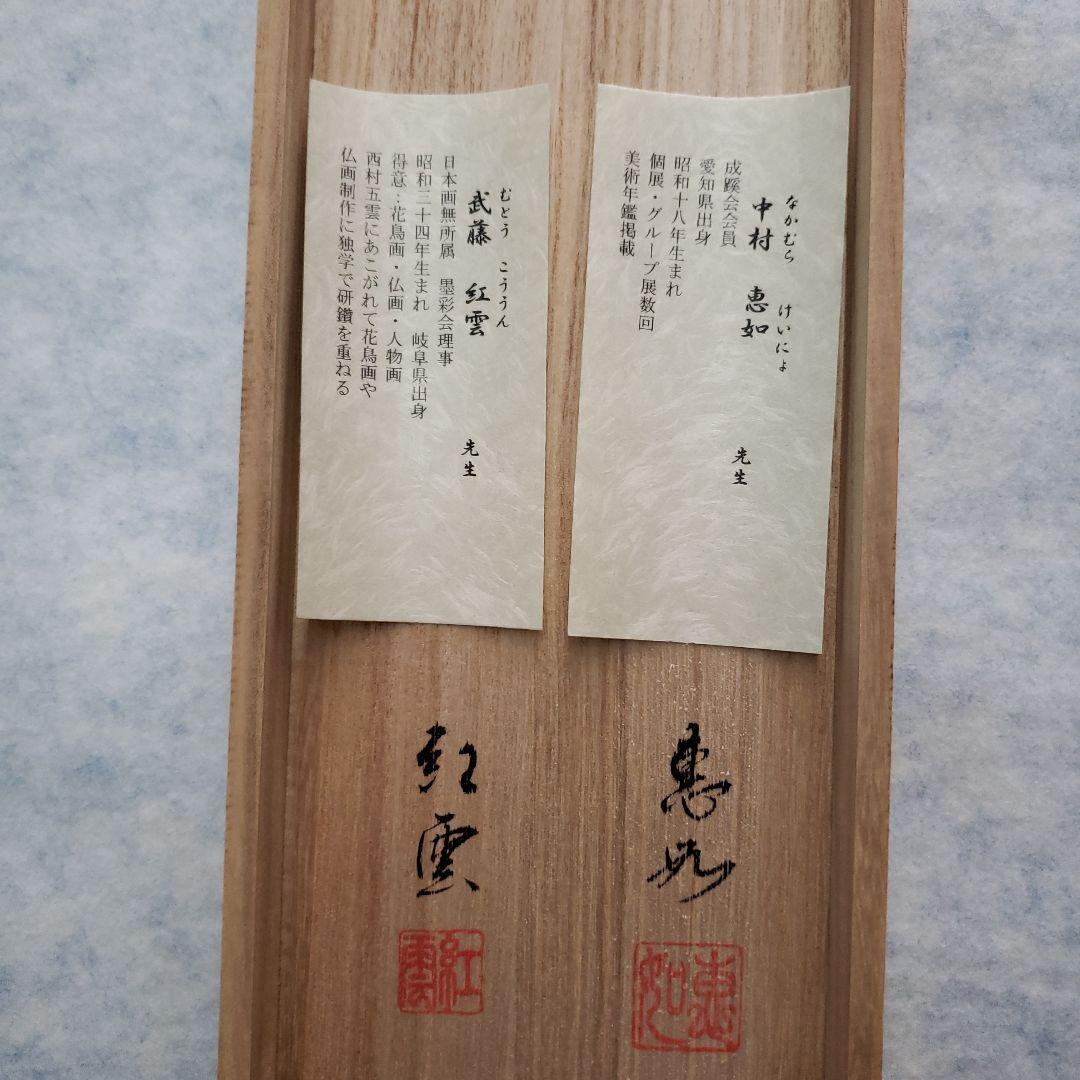 なかむら けいにょ
中村 恵如 先生
成蹊会会員
愛知県出身
昭和十八年生まれ
個展・グループ展数回
美術年鑑掲載
むとう こううん
武藤 紅雲 先生
日本画無所属 墨彩会理事
昭和三十四年生まれ 岐阜県出身
得意：花鳥画・仏画・人物画
西村五雲にあこがれて花鳥画や
仏画制作に独学で研鑽を重ねる
恵如
恵如
紅雲
紅雲